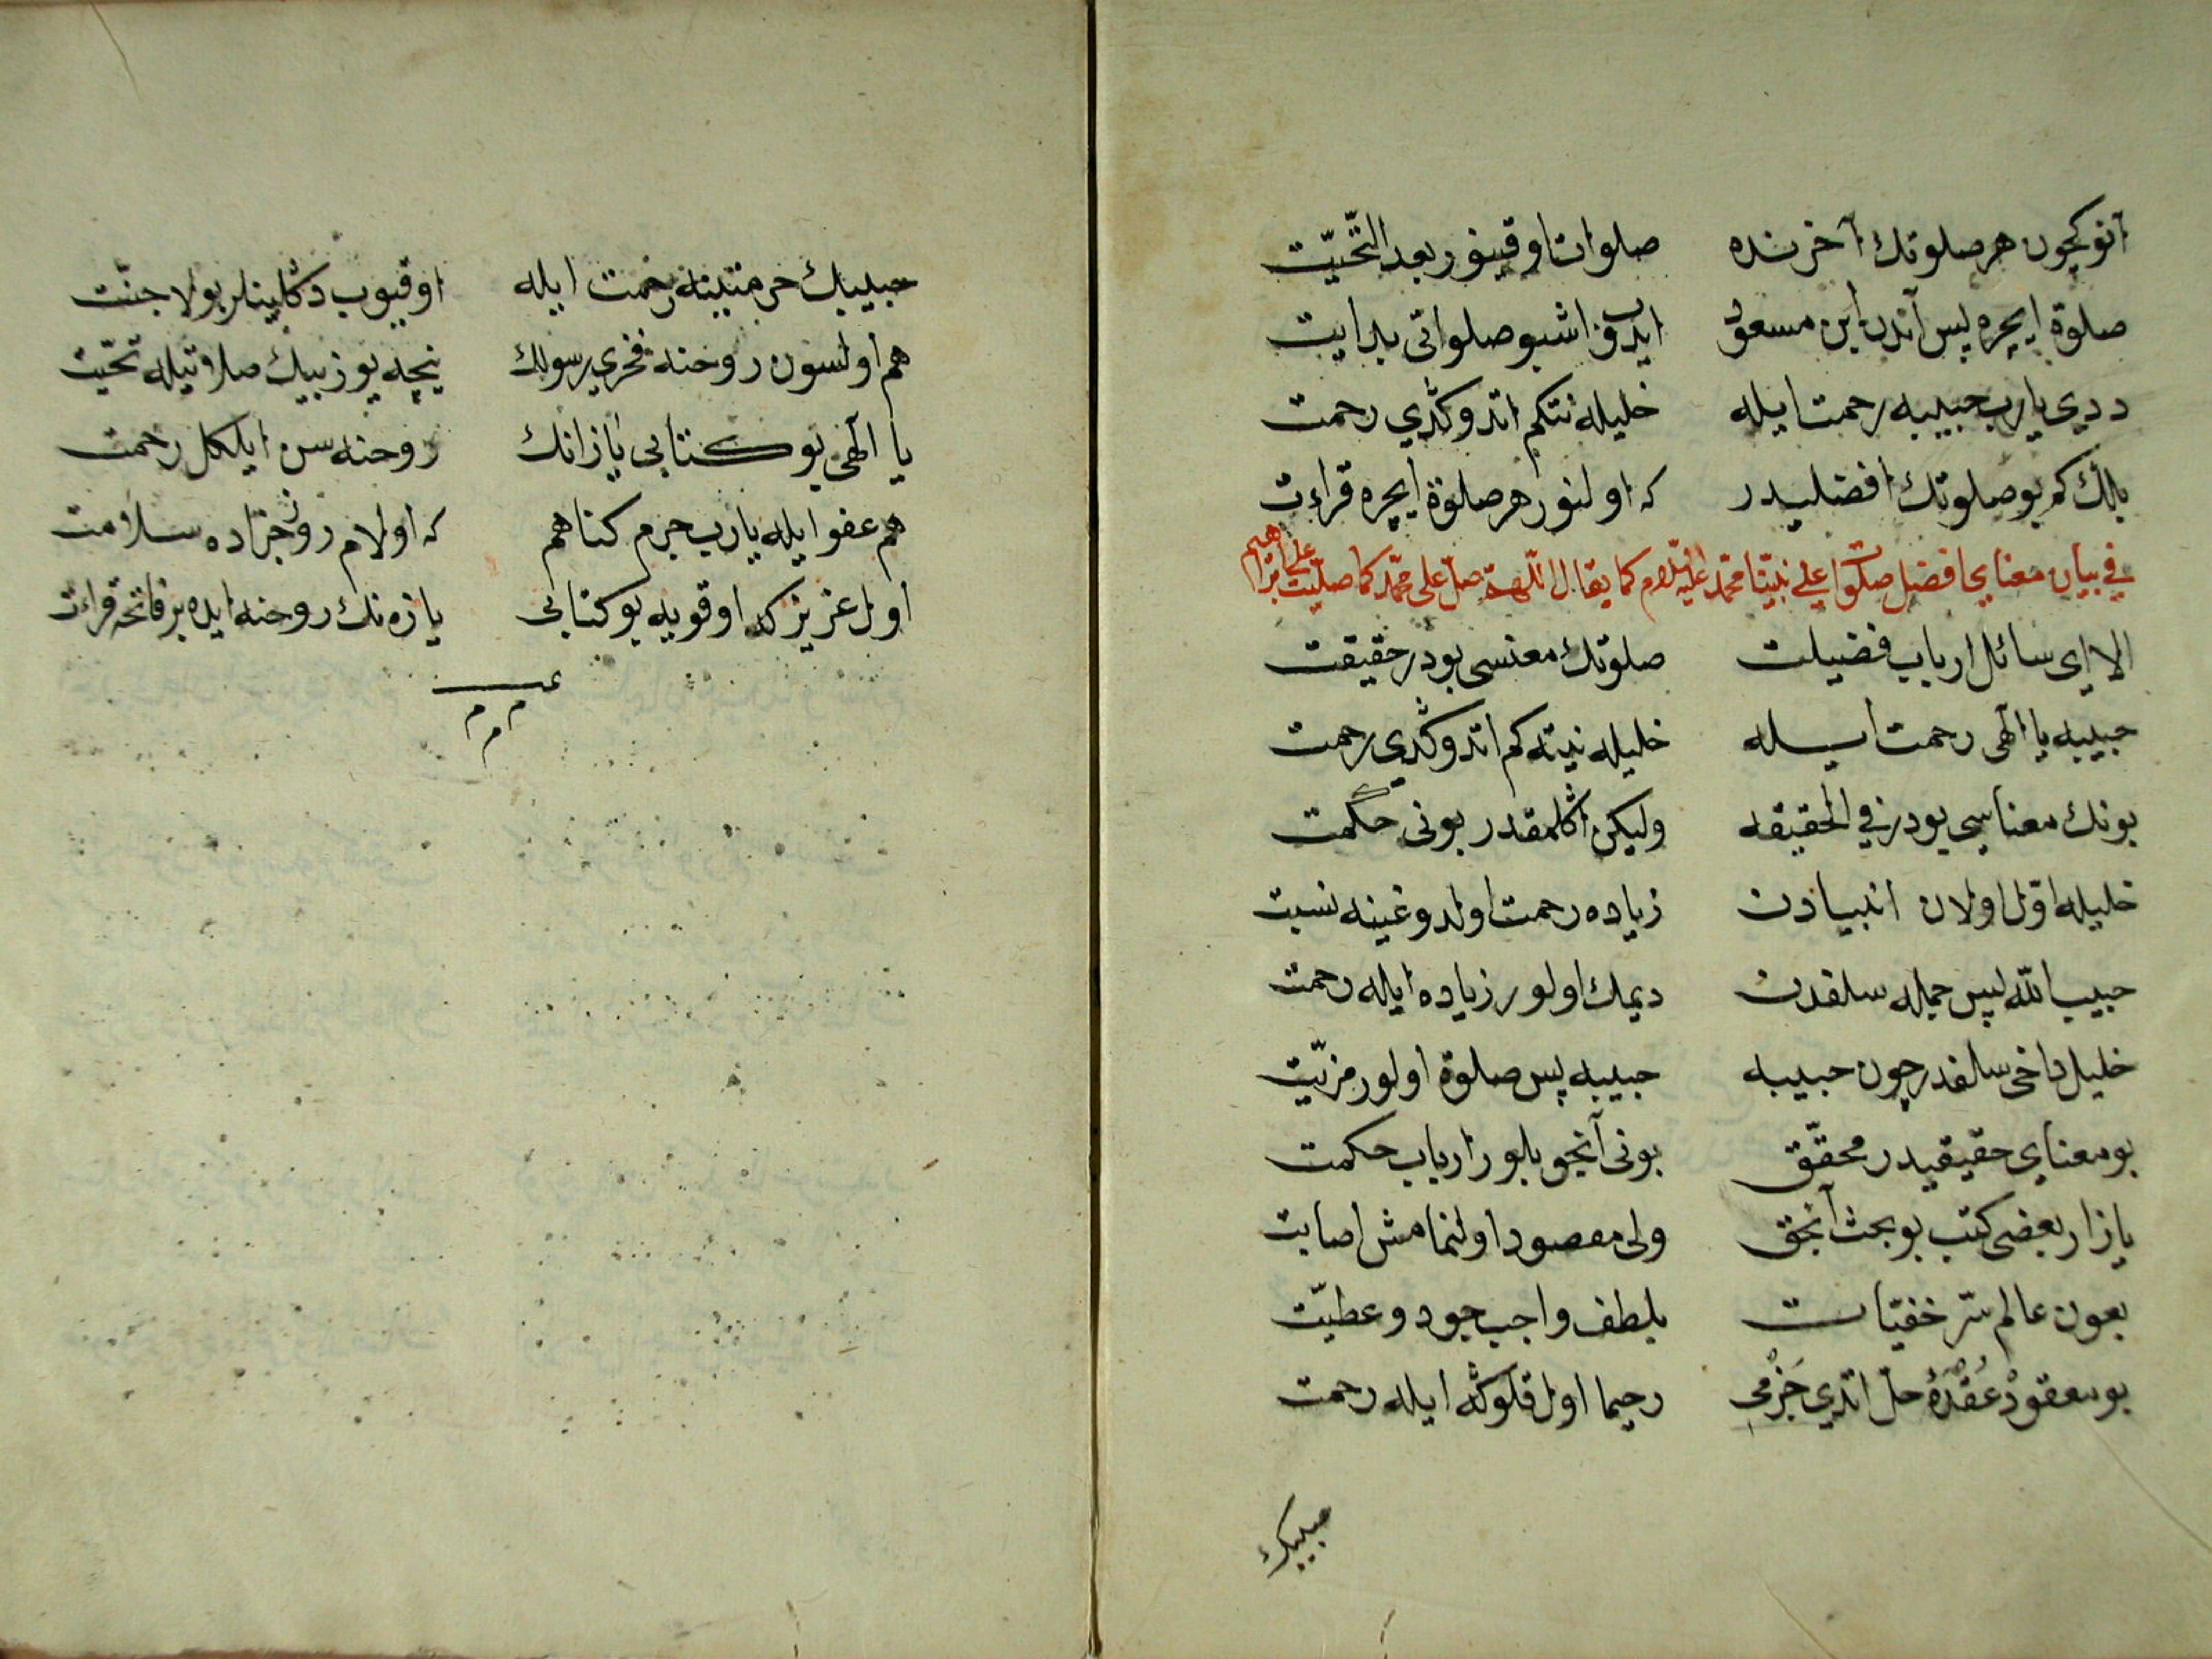 آنوكچون هر صلوتك آخرنده صلوات اوقينور بعد التّحيّت
صلوة ايچره پس آندن ابن مسعود ايدب اشبو صلواتى بدايت
ددي يارب حبيبيه رحمت ايله خليله نتكم اتدوكڭدي رحمت
بلك كم بو صلوتك افضليدر كه اولنور هر صلوة ايچره قراءت
في بيان معناي افضل صلوا على نبيّنا محمّد عليه السّلام كما يقال اللّهمّ صلّ على محمّد كما صلّيت على ابراهيم
الا اى سائل ارباب فضيلت صلوتك معنسى بودر حقيقت
حبيبه يا الٓهى رحمت ايله خليله نيته كم اتدوكڭدي رحمت
بونك معناسي بودر في الحقيقه وليكن اڭلمقدر بونى حكمت
خليله اوّل اولان انبيادن زياده رحمت اولدوغينه نسبت
حبيب اللّه پس جمله سلفدن ديمك اولور زياده ايله رحمت
خليل داخى سلفدر چون حبيبه حبيبه پس صلوة اولور مزيّت
بو معناى حقيقيدر محقّق بونى آنجق بلور ارباب حكمت
يازار بعضى كتب بو بحث آنجق ولى مقصود اولنمامش اصابت
بعون عالم سّر خفيّات بلطف واجب جود و عطيّت
بو معقود عُقْدَهٔ حلّ اتدي جَزْمى رحيما اول قلوڭه ايله رحمت
حبيبك
حبيبك حرمتينه رحمت ايله اوقيوب دڭلينلر بولا جنّت
هم اولسون روحنه فخري رسولك نيچه يوز بيك صلاتيله تحيّت
يا الٓهى بو كتابى يازانك روحنه سن ايلكل رحمت
هم عفو ايله يارب جرم كناهم كه اولام روز جزاده سلامت
اول عزيز كه اوقويه بو كتابى يازه نك روحنه ايده بر فاتحه قراءت
م م م